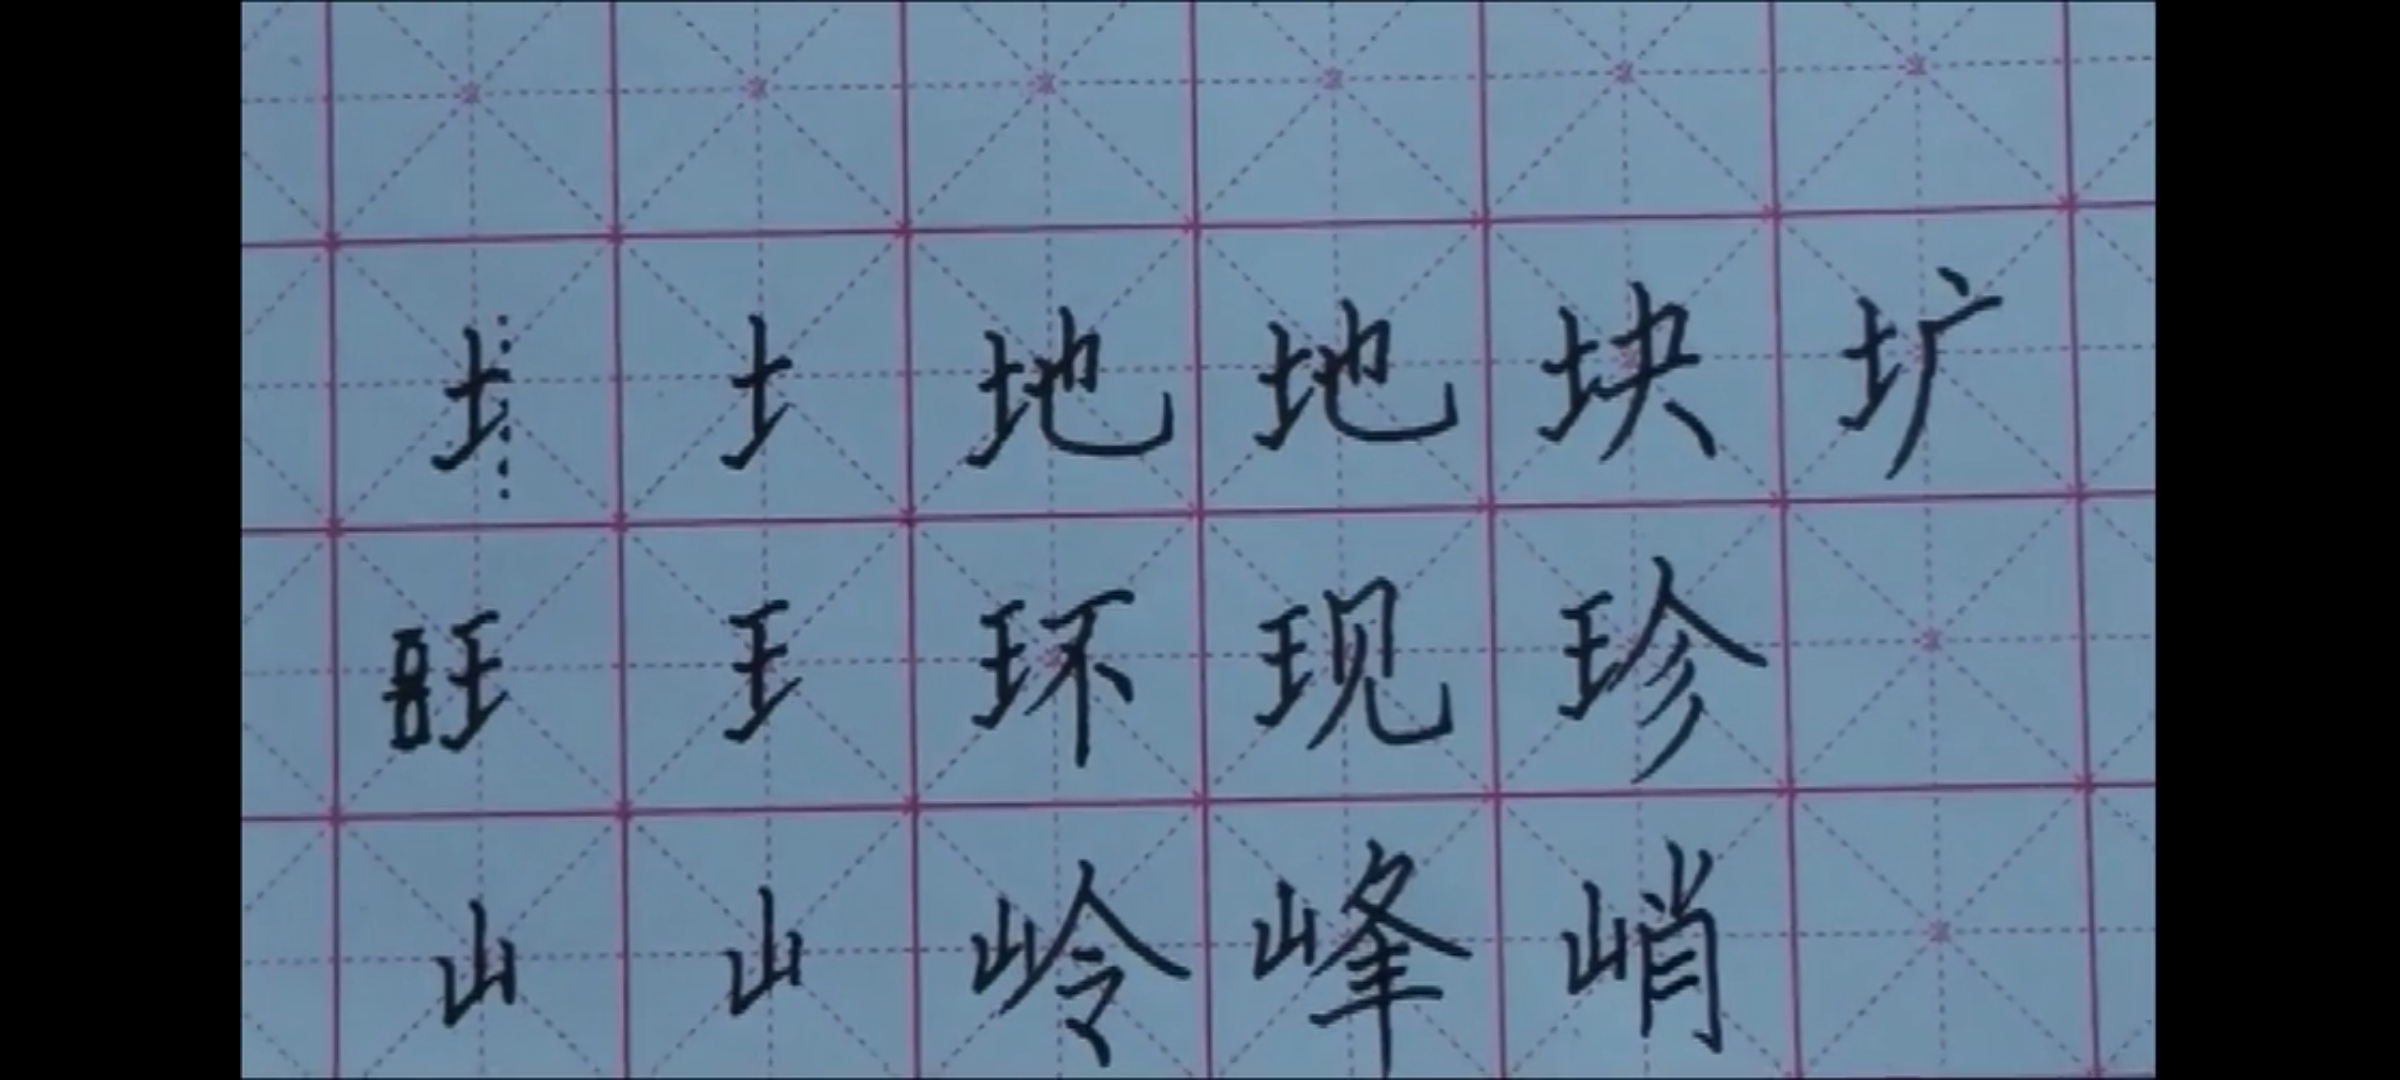 土 土 地 地 块 圹
王 王 环 现 珍
山 山 岭 峰 峭